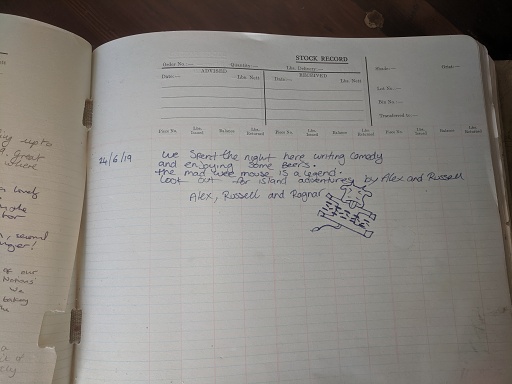 STOCK RECORD
Order No.:— Quantity:— Lbs. Delivery:—
ADVISED RECEIVED
Date:— Lbs. Nett Date:— Lbs. Nett
Lot No.:—
Bin No.:—
Transferred to:—
Piece No. Lbs. Issued Balance Lbs. Returned Piece No. Lbs. Issued Balance Lbs. Returned Piece No. Lbs. Issued Balance Lbs. Returned
24/6/19 We spent the night here writing comady
and enjoying some Beers.
the mad wee mouse is a legend.
Look out for island adventures by Alex and Russell
Alex, Russell and Ragnar
up to
great
where
lovely
second
of our
Notions'
We
taking